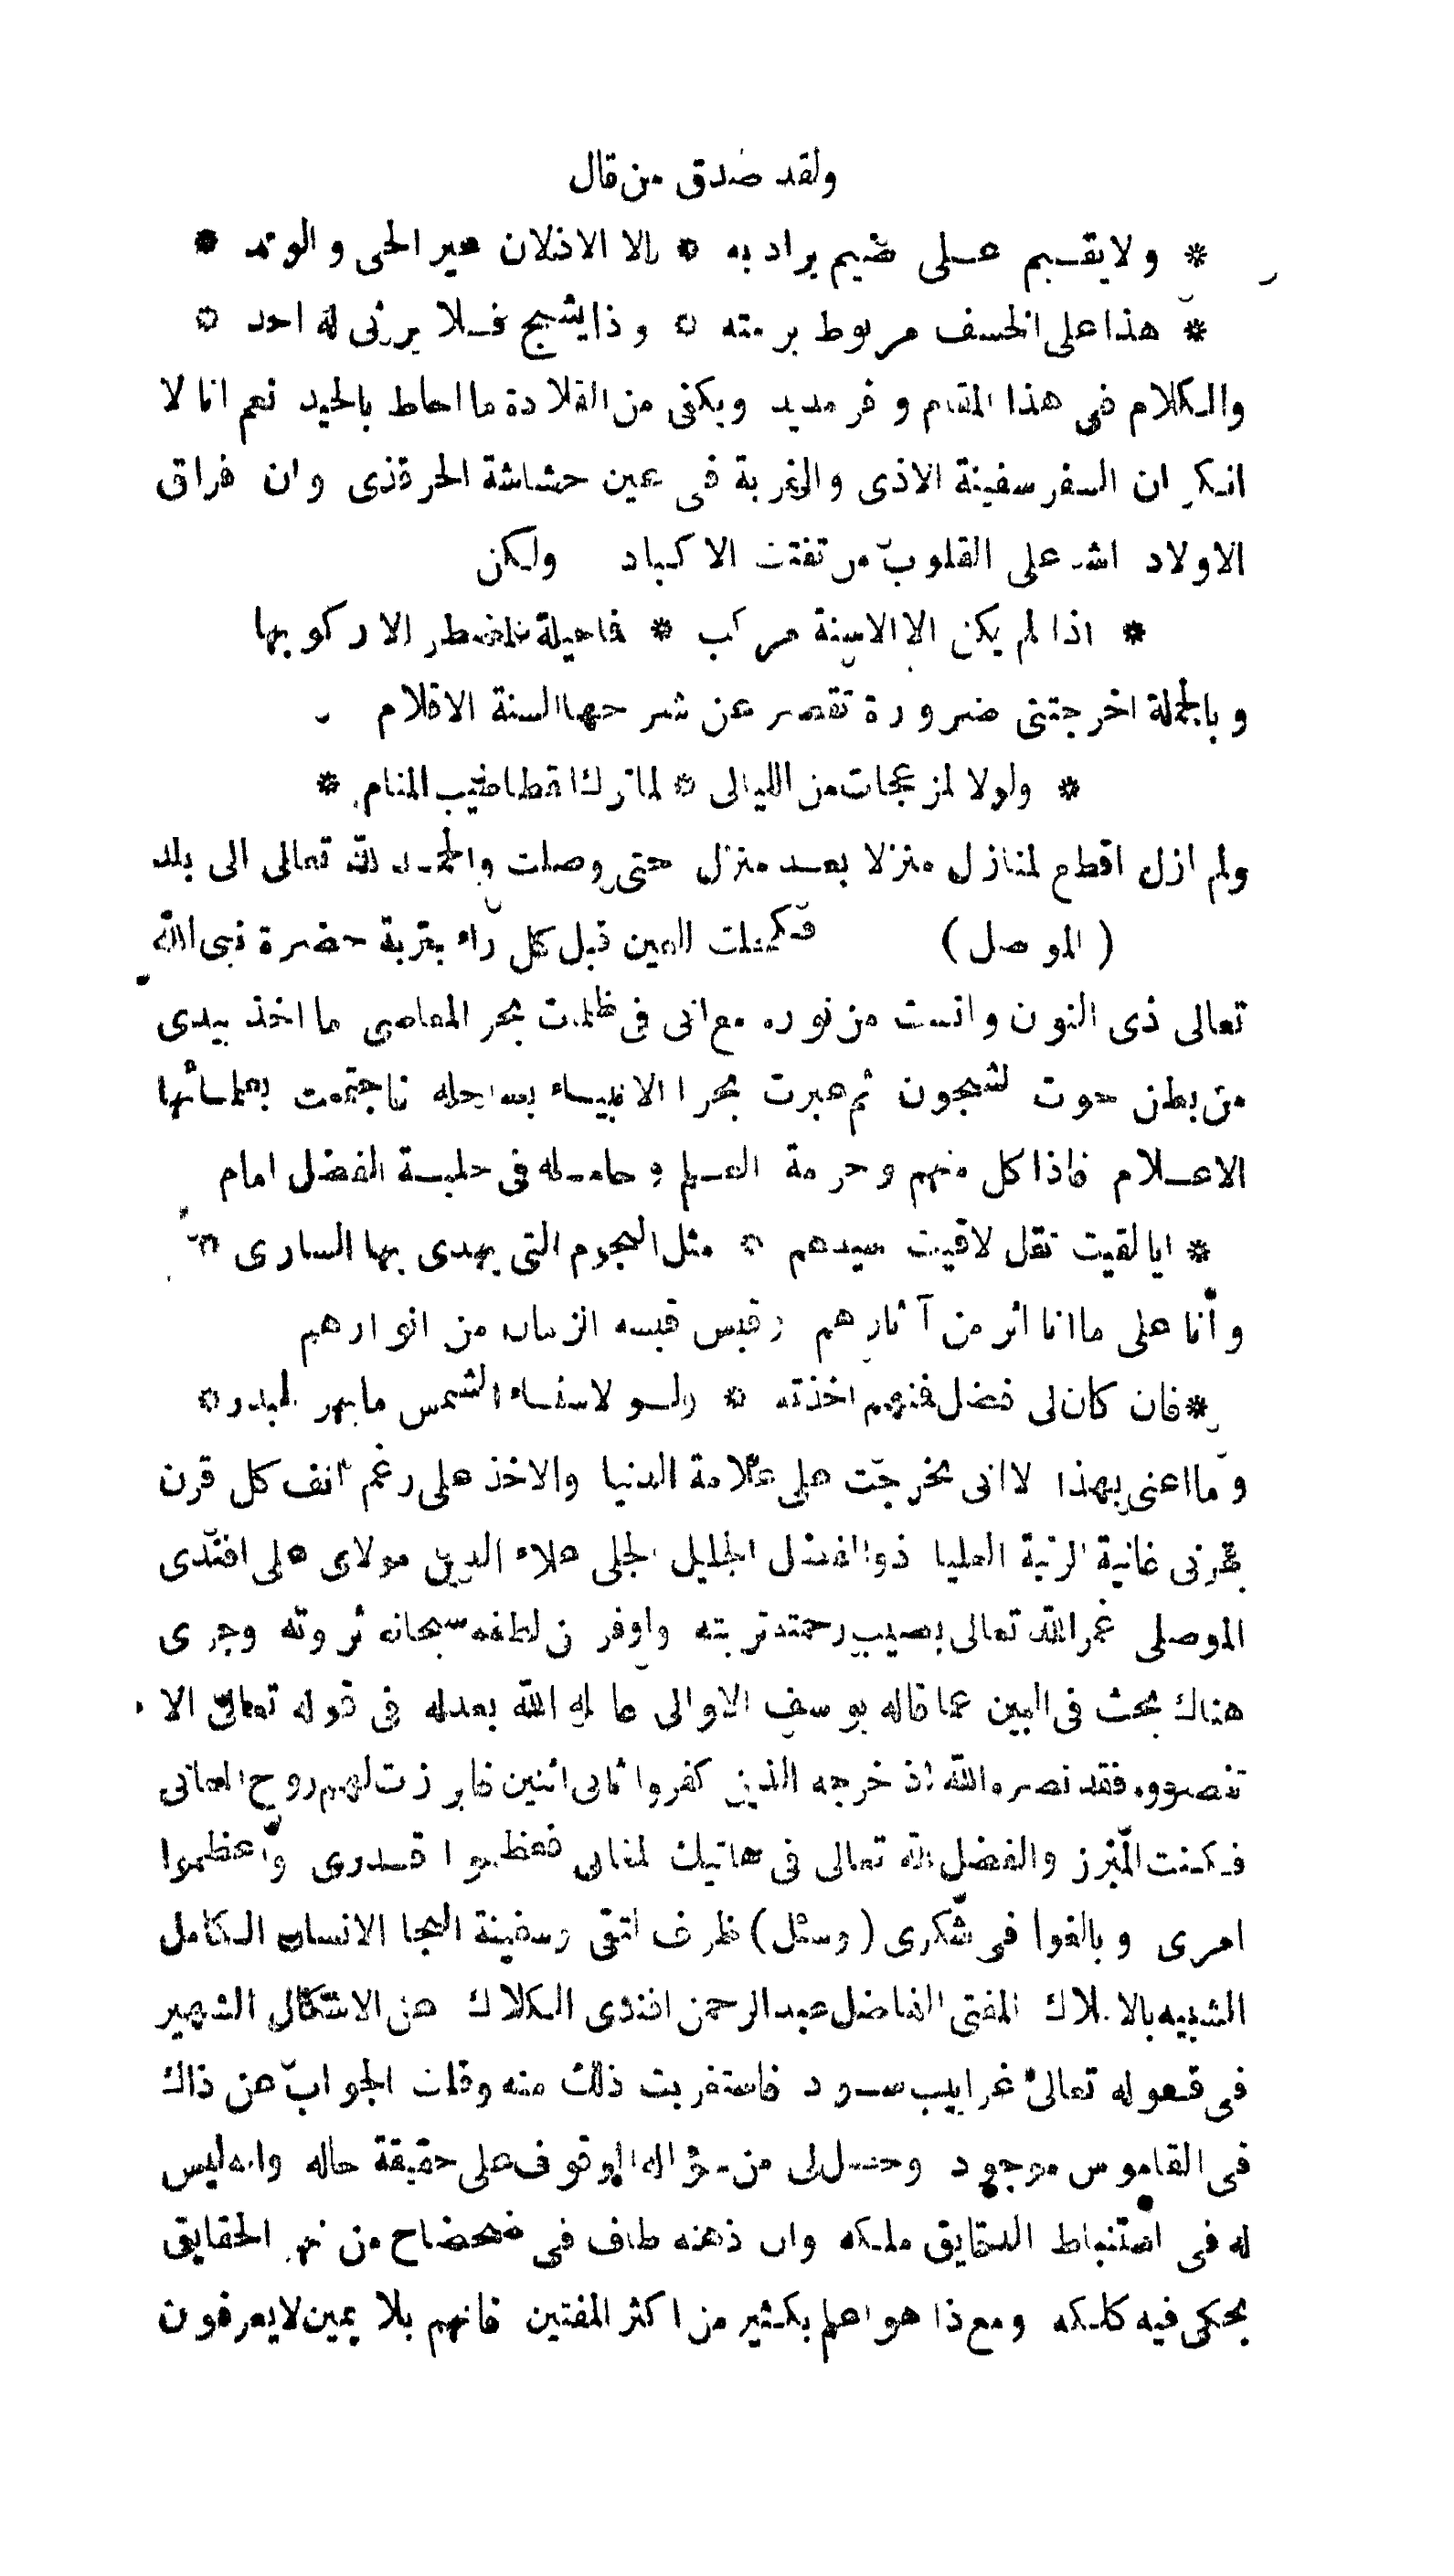 ولقد صدق من قال
* ولا يقيم على ضيم يراد به * الا الاذلان عير الحى والوتد *
* هذا على الخسف مربوط برمته * وذا يشج فلا يرثى له احد *
والكلام فى هذا المقام وفر مديد ويكفى من القلادة ما احاط بالجيد نعم انا لا
انكر ان السفر سفينة الاذى والغربة فى عين حشاشة الحر قذى وان فراق
الاولاد اشد على القلوب من تفتت الاكباد ولكن
* اذا لم يكن الا الاسنة مركب * فما حيلة المضطر الا ركوبها
وبالجملة اخرجتنى ضرورة تقصر عن شرحها السنة الاقلام
* ولولا المزعجات من الليالى * لما ترك القطا طيب المنام *
ولم ازل اقطع المنازل منزلا بعد منزل حتى وصلت والحمد لله تعالى الى بلد
(الموصل) فكحلت العين قبل كل راء بتربة حضرة نبى الله
تعالى ذى النون وانست من نوره مع انى فى ظلمات بحر المعاصى ما اخذ بيدى
من بطن حوت الشجون ثم عبرت بحرا الانبياء بساحله فاجتمعت بعلمائها
الاعلام فاذا كل منهم وحرمة العلم وحامله فى حلبة الفضل امام
* ايا لقيت تقل لاقيت سيدهم * مثل النجوم التى يهدى بها السارى *
وأنا على ما انا اثر من آثارهم وقبس قبسه الزمان من انوارهم
* فان كان لى فضل فمنهم اخذته * ولولا سناء الشمس ما بهر البدر *
وما اعنى بهذا الا انى تخرجت على علامة الدنيا والاخذ على رغم انف كل قرن
بقرنى غانية الرتبة العليا ذو الفضل الجليل الجلى علاء الدين مولاى على افندى
الموصلى غمر الله تعالى بصيب رحمته تربته واوفر من لطفه سبحانه ثروته وجرى
هناك بحث فى البين عما قاله يوسف الاوالى عامله الله بعدله فى قوله تعالى الا
تنصروه فقد نصره الله اذ اخرجه الذين كفروا ثانى اثنين فابرزت لهم روح المعانى
فكنت المبرز والفضل لله تعالى فى هاتيك المغانى فعظموا قدرى واعظموا
امرى وبالغوا فى شكرى (وسئل) ظرف التقى وسفينة النجا الانسان الكامل
الشبيه بالاملاك المفتى الفاضل عبد الرحمن افندى الكلاك عن الاشكال الشهير
فى قوله تعالى غرابيب سود فاستغربت ذلك منه وقلت الجواب عن ذاك
فى القاموس موجود وحصل لى من سؤاله الوقوف على حقيقة حاله وانه ليس
له فى استنباط الدقايق ملكه وان ذهنه طاف فى ضحضاح من نهر الحقايق
يحكى فيه كلكه ومع ذا هو اعلم بكثير من اكثر المفتين فانهم بلا يمين لا يعرفون